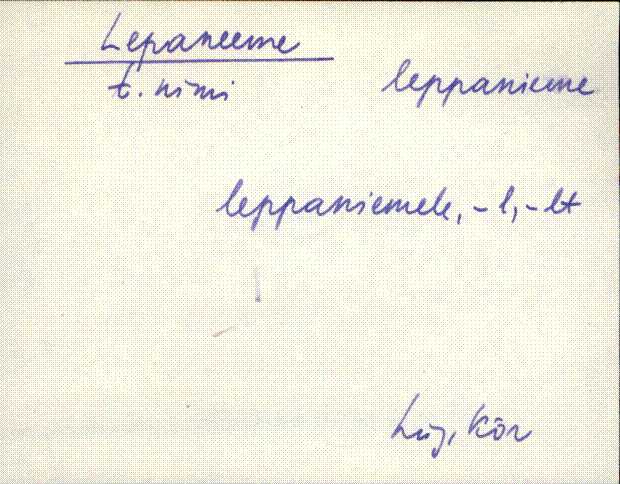 Lepaneeme
t. nimi leppanieme
leppaniemele, -l, -lt
Lüg, Kõr